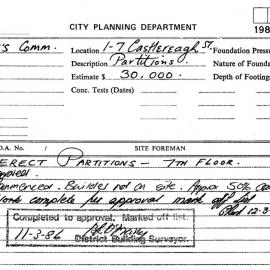 CITY PLANNING DEPARTMENT
198
's Comm. Location 1-7 Castlereagh St. Foundation Press
Description Partitions. Nature of Found
Estimate $ 30,000. Depth of Footings
Conc. Tests (Dates)
D.A. No. / SITE FOREMAN
ERECT PARTITIONS - 7TH FLOOR.
ommenced. Builder not on site. Approx 50%
Work complete per approval mark off list
12-3-
Completed to approval. Marked off list.
11-3-86
District Building Surveyor.